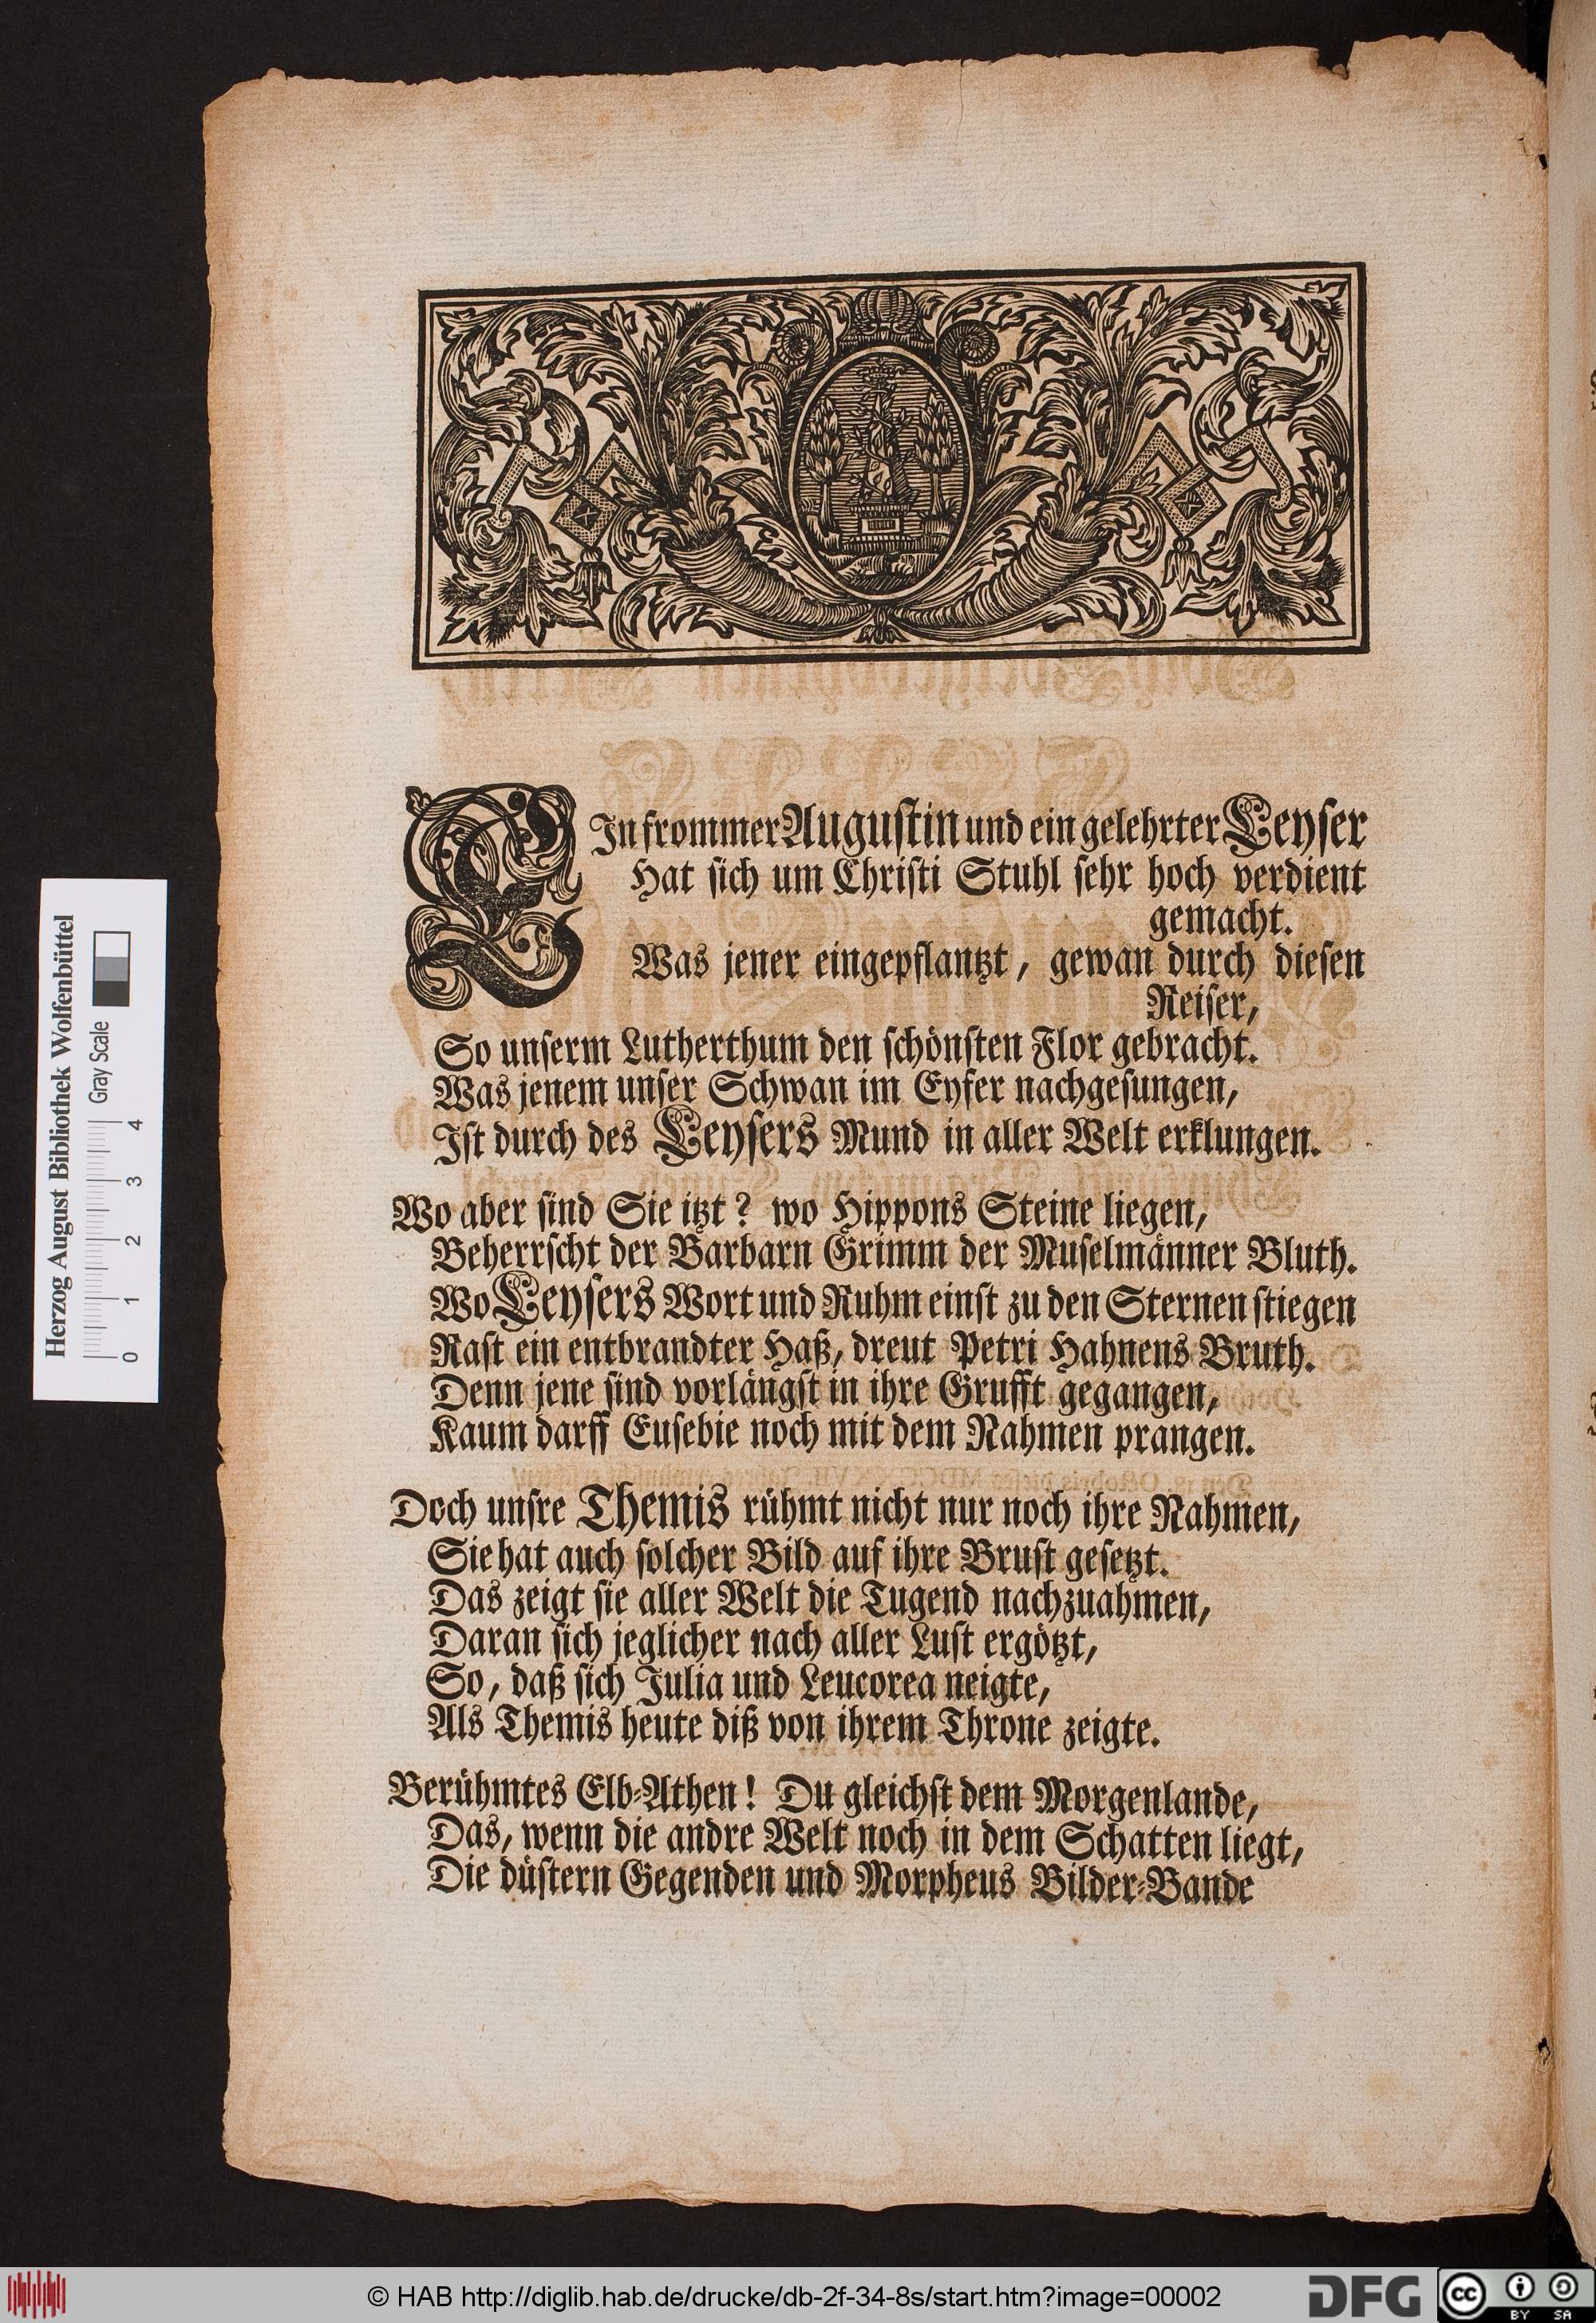 EIn frommer Augustin und ein gelehrter Leyser
Hat sich um Christi Stuhl sehr hoch verdient
gemacht.
Was jener eingepflantzt, gewan durch diesen
Reiser,
So unserm Lutherthum den schönsten Flor gebracht.
Was jenem unser Schwan im Eyfer nachgesungen,
Ist durch des Leysers Mund in aller Welt erklungen.
Wo aber sind Sie itzt? wo Hippons Steine liegen,
Beherrscht der Barbarn Grimm der Muselmänner Bluth.
Wo Leysers Wort und Ruhm einst zu den Sternen stiegen
Rast ein entbrandter Haß, dreut Petri Hahnens Bruth.
Denn jene sind vorlängst in ihre Grufft gegangen,
Kaum darff Eusebie noch mit dem Nahmen prangen.
Doch unsre Themis rühmt nicht nur noch ihre Nahmen,
Sie hat auch solcher Bild auf ihre Brust gesetzt.
Das zeigt sie aller Welt die Tugend nachzuahmen,
Daran sich jeglicher nach aller Lust ergötzt,
So, daß sich Julia und Leucorea neigte,
Als Themis heute diß von ihrem Throne zeigte.
Berühmtes Elb-Athen! Du gleichst dem Morgenlande,
Das, wenn die andre Welt noch in dem Schatten liegt,
Die düstern Gegenden und Morpheus Bilder-Bande
Herzog August Bibliothek Wolfenbüttel
Gray Scale
0 1 2 3 4
© HAB http://diglib.hab.de/drucke/db-2f-34-8s/start.htm?image=00002
DFG
cc BY SA